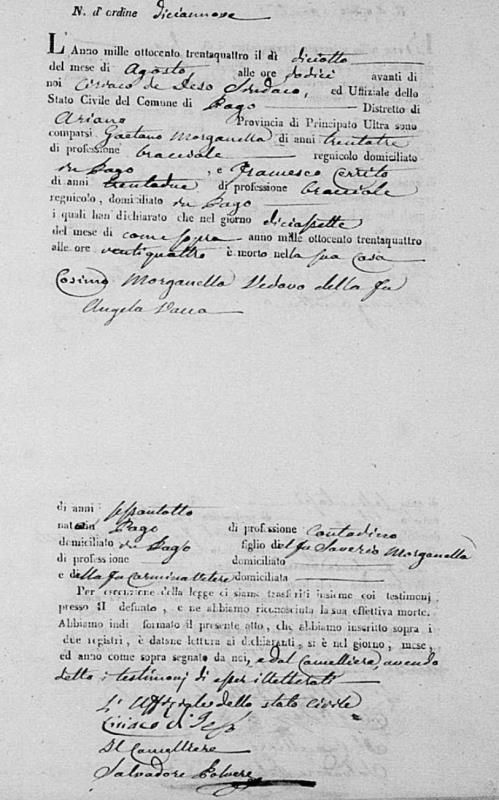 N. d'ordine diciannove
L'Anno mille ottocento trentaquattro il dì diciotto
del mese di Agosto alle ore dodici avanti di
noi Ciriaco de Leso Sindaco, ed Uffiziale dello
Stato Civile del Comune di Pago Distretto di
Ariano Provincia di Principato Ultra sono
comparsi Gaetano Morganella di anni trentatre
di professione bracciale regnicolo domiciliato
in Pago, e Francesco Cerrito
di anni trentadue di professione bracciale
regnicolo, domiciliato in Pago
i quali han dichiarato che nel giorno diciassette
del mese di come sopra anno mille ottocento trentaquattro
alle ore ventiquattro è morto nella sua Casa
Cosimo Morganella Vedovo della fu
Angela Vacca
di anni sessantotto
nato in Pago di professione contadino
domiciliato in Pago figlio del fu Saverio Morganella
di professione domiciliato
e della fu Carmina domiciliata
Per esecuzione della legge ci siamo trasferiti insieme coi testimonj
presso il defunto, e ne abbiamo riconosciuta la sua effettiva morte.
Abbiamo indi formato il presente atto, che abbiamo inscritto sopra i
due registri, e datone lettura ai dichiaranti, si è nel giorno, mese,
ed anno come sopra segnato da noi, e dal Cancelliere avendo
detto i testimonj di esser illetterati
L'Uffiziale dello stato Civile
Ciriaco di
Il Cancelliere
Salvadore Polvere